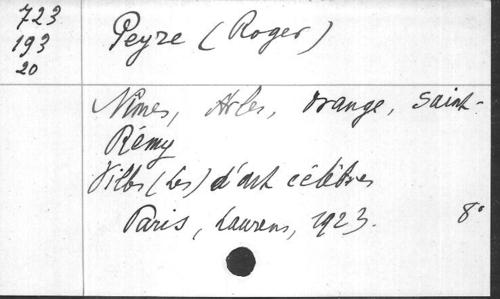 723
193
20
Peyre (Roger)
Nîmes, Arles, Orange, Saint-
Rémy
Villes (Les) d'art célèbres
Paris, Laurens, 1923. 8°